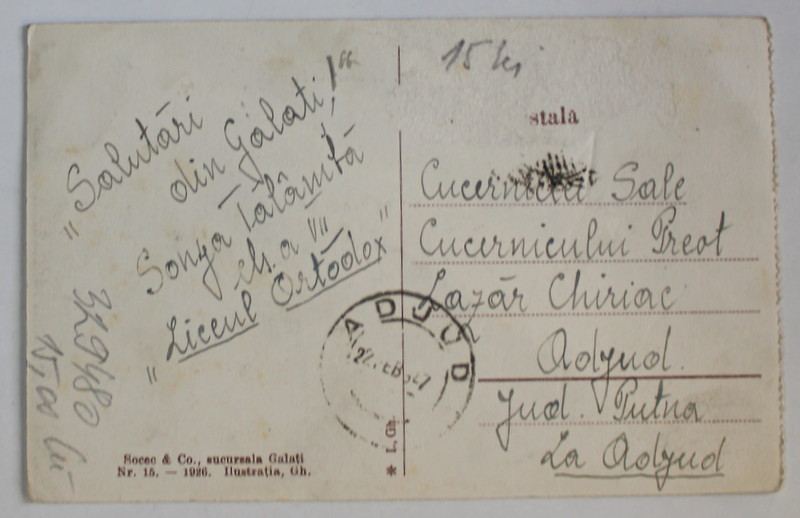 15 lei
stală
„Salutări
din Galați!“
Sonya Tălâmbă
cls. a VII
„Liceul Ortodox”
321980
15,00 lei
Cucerniciei Sale
Cucernicului Preot
Lazăr Chiriac
Adjud.
Jud. Putna
La Adjud
ADJUD
Socec & Co., sucursala Galați
Nr. 15. — 1926. Ilustrația, Gh.
* I. Gh.